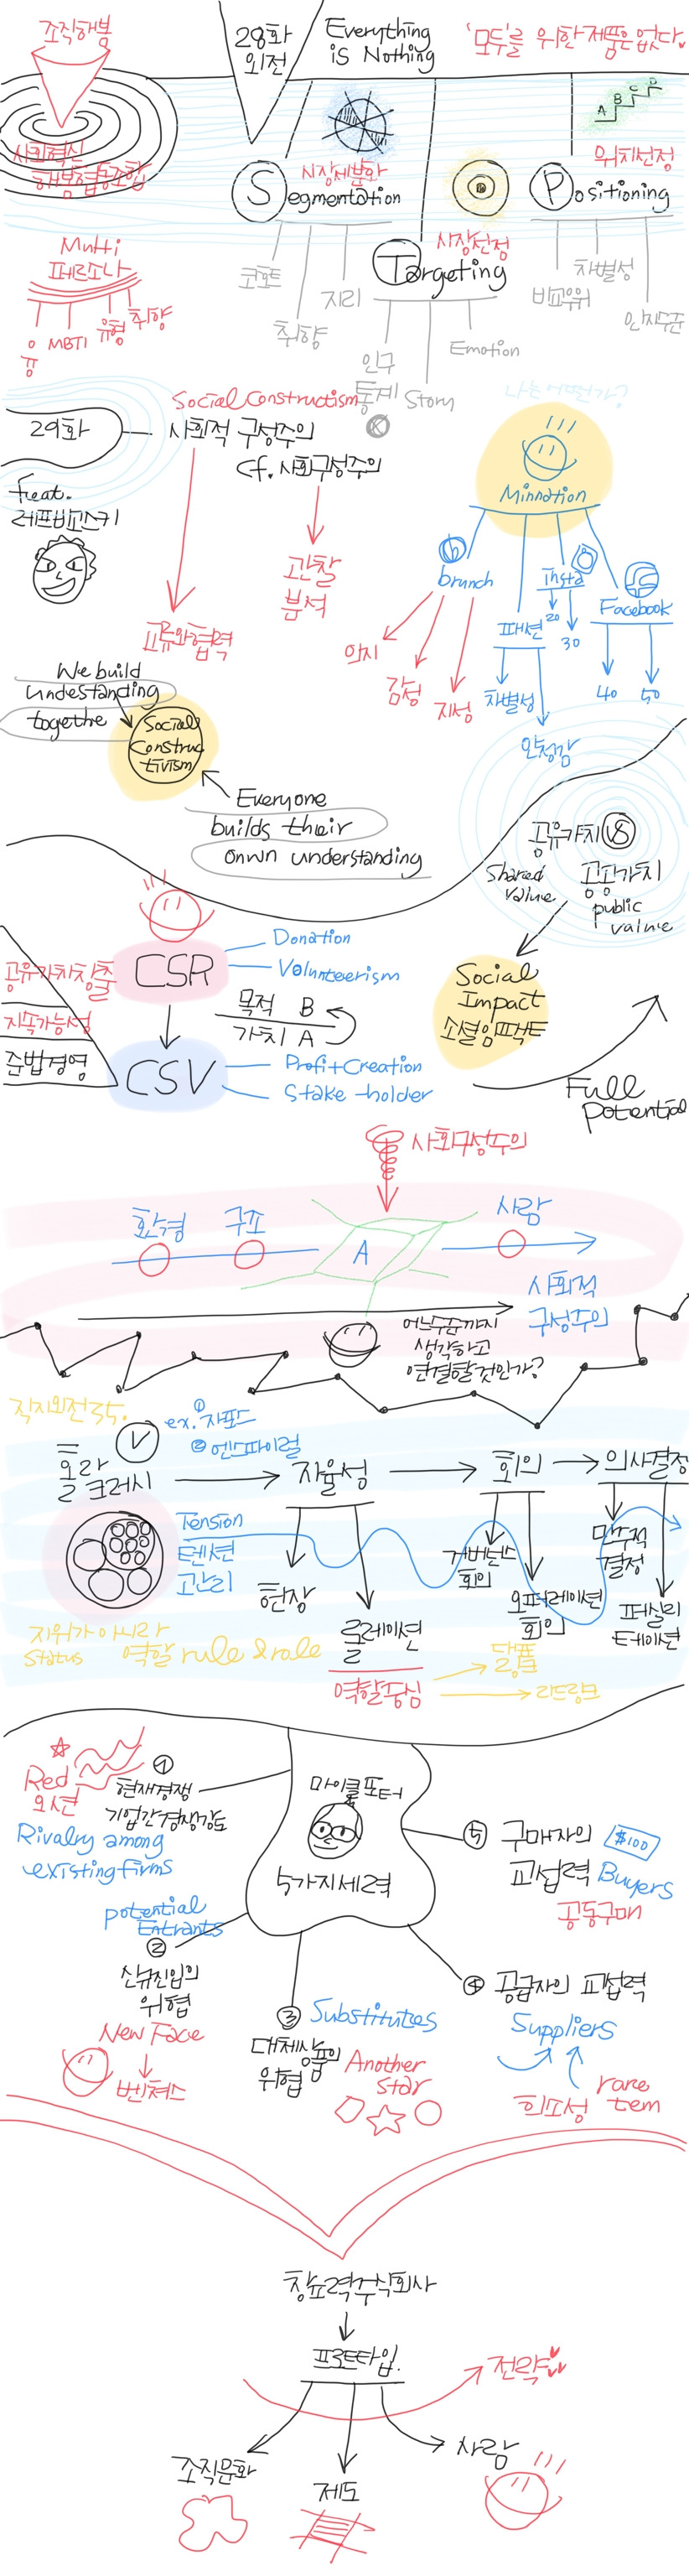 조직해봄
28화
외전
Everything
is Nothing
'모두'를 위한 제품은 없다.
사회혁신
해봄협동조합
Multi
페르소나
MBTI
유형
취향
시장세분화
Segmentation
코호트
취향
지리
시장선정
Targeting
인구
통계
Story
Emotion
A B C D
위치선정
Positioning
비교우위
차별성
인지수준
29화
Feat.
레프비고스키
Social Constructism
사회적 구성주의
cf. 사회구성주의
교류와협력
관찰
분석
나는 어떤가?
Minnation
brunch
인지
감성
지성
패션
차별성
insta
20
30
Facebook
40
50
We build
undestanding
togethe
Social
Construc
tivism
Everyone
builds their
onwn understanding
공유가치 VS
Shared
value
공공가치
public
value
Social
Impact
소셜임팩트
Full
potential
공유가치창출
지속가능성
준법경영
CSR
Donation
Volunteerism
목적 B
가치 A
CSV
Profit+Creation
Stake holder
사회구성주의
환경
구조
A
사람
사회적
구성주의
어느수준까지
생각하고
연결할것인가?
홀라
크러시
V
ex. ① 자포스
② 엔스파이럴
자율성
회의
의사결정
Tension
텐션
관리
현장
룰레이션
거버넌스
회의
오퍼레이션
회의
민주적
결정
퍼실리
테이션
지위가 아니라
status
역할 rule & role
역할중심
리드링크
Red
오션
①
현재경쟁
기업간경쟁강도
Rivalry among
existing firms
마이클포터
5가지세력
⑤ 구매자의
교섭력
$100
Buyers
공동구매
potential
Entrants
②
신규진입의
위협
New Face
벤쳐스
③ Substitutes
대체상품의
위협
Another
star
④ 공급자의 교섭력
Suppliers
희소성
rare
tem
창조력주식회사
프로토타입.
전략
조직문화
제도
사람